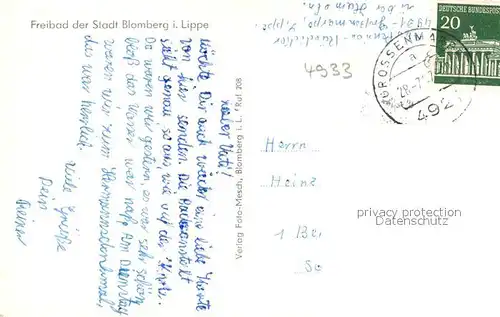 Freibad der Stadt Blomberg i. Lippe
Lieber Vati!
Möchte Dir auch wieder eine liebe Karte
von hier senden. Die Badeanstalt
sieht genau so aus, wie auf der Karte.
Da waren wir gestern, es war sehr schön,
bloß das Wasser war naß. Am Dienstag
waren wir zum Hermannsdenkmal,
das war herrlich.
Viele Grüße
Dein
Verlag Foto-Mesch, Blomberg i. L., Ruf 208
4933
DEUTSCHE BUNDESPOST
20
GROSSENM
492
Herrn
Heinz
1 Be
privacy protection
watermark